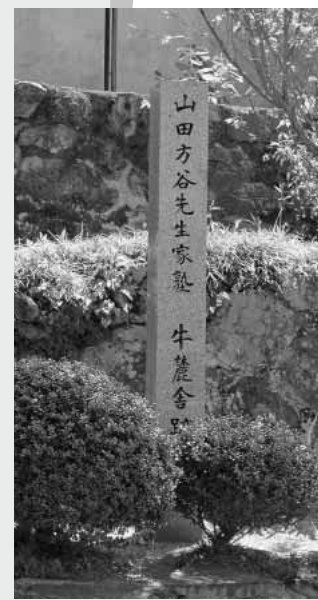 山田方谷先生家塾 牛麓舎跡